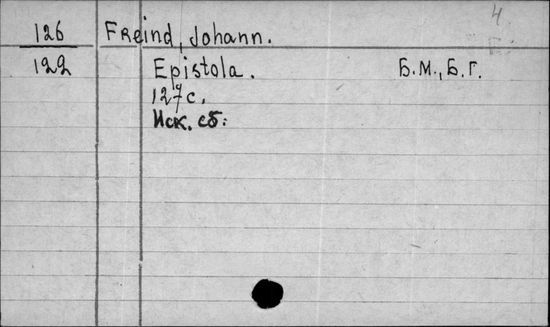 4
126 Freind, Johann.
122 Epistola. Б.М., Б.Г.
127 с.
Иск. сб: